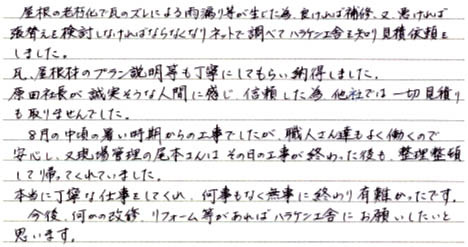 屋根の老朽化で瓦のズレによる雨漏り等が生じた為、良ければ補修、又、悪ければ
張替えを検討しなければならなくなりネットで調べてハラケン工舎を知り見積依頼を
しました。
瓦、屋根材のプラン説明等も丁寧にしてもらい納得しました。
原田社長が誠実そうな人間に感じ、信頼した為、他社では一切見積り
も取りませんでした。
8月の中頃の暑い時期からの工事でしたが、職人さん達もよく働くので
安心し、又現場管理の尾本さんはその日の工事が終わった後も、整理整頓
して帰ってくれていました。
本当に丁寧な仕事をしてくれ、何事もなく無事に終わり有難かったです。
今後、何かの改修、リフォーム等があればハラケン工舎にお願いしたいと
思います。